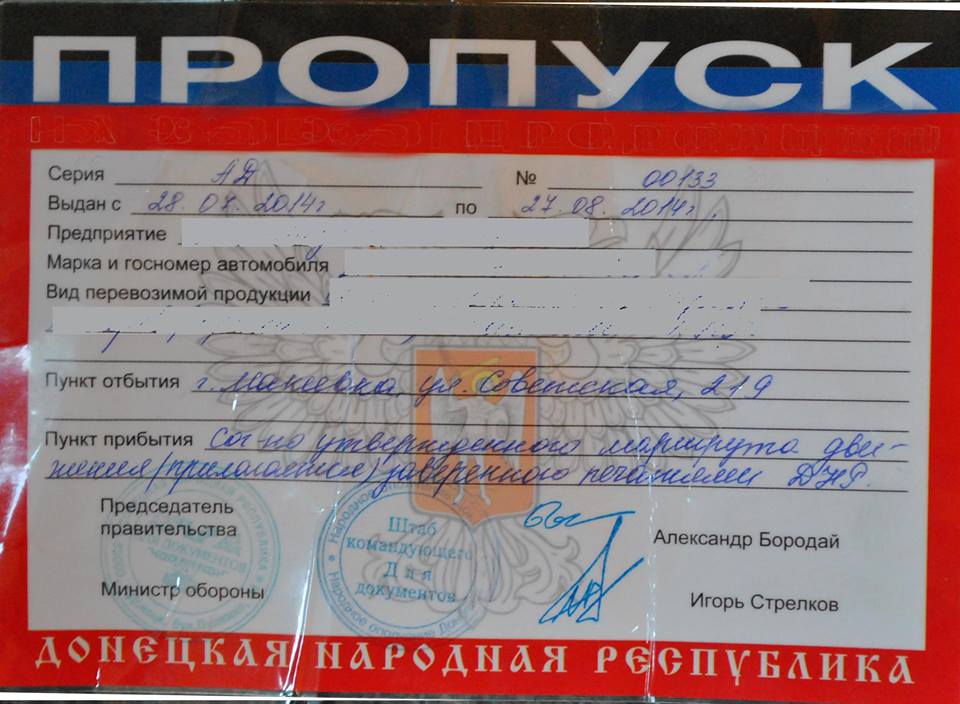 ПРОПУСК
Серия АД № 00133
Выдан с 28.07.2014г по 27.08.2014г.
Предприятие
Марка и госномер автомобиля
Вид перевозимой продукции
Пункт отбытия г. Макеевка, ул. Советская, 219
Пункт прибытия Сог-но утвержденного маршрута дви-
жения (прилагается) заверенного печатями ДНР.
Председатель
правительства
Александр Бородай
Министр обороны
Игорь Стрелков
Штаб
командующего
Для
документов
Народное ополчение
ДОНЕЦКАЯ НАРОДНАЯ РЕСПУБЛИКА